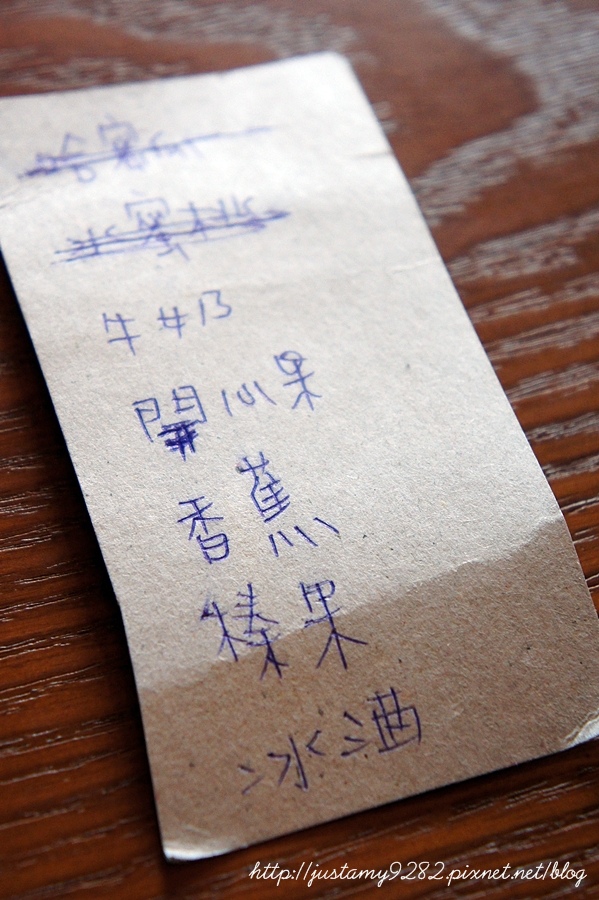 哈密瓜
水蜜桃
牛奶
開心果
香蕉
榛果
冰酒
http://justamy9282.pixnet.net/blog